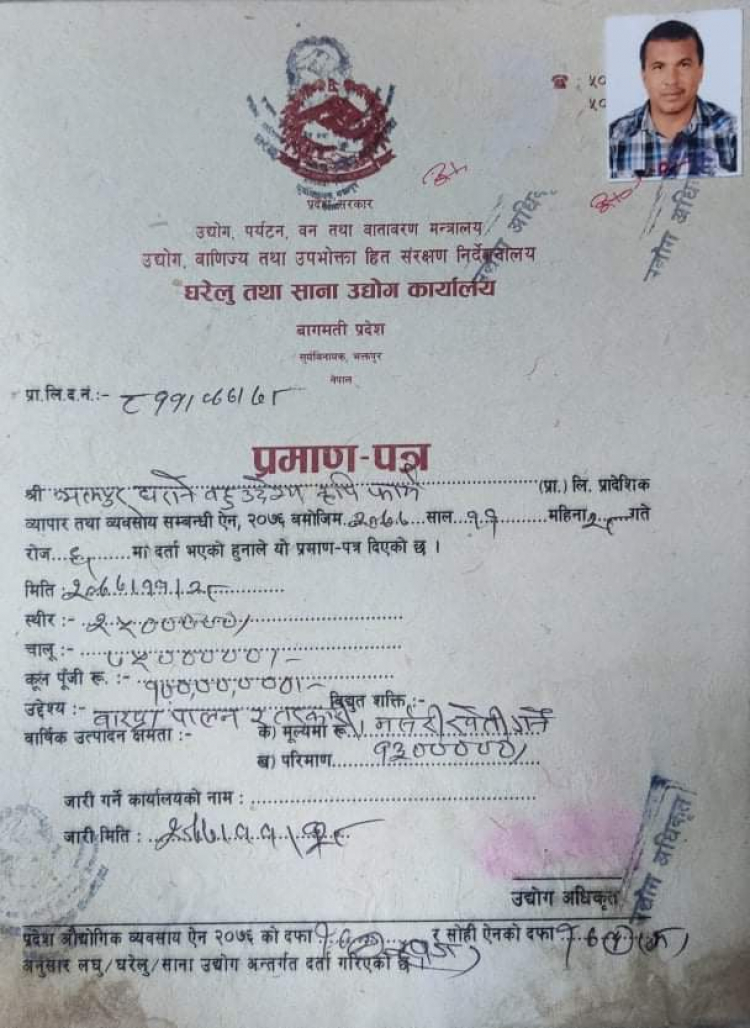 ☎ : ५०
५०
प्रदेश सरकार
उद्योग, पर्यटन, वन तथा वातावरण मन्त्रालय
उद्योग, वाणिज्य तथा उपभोक्ता हित संरक्षण निर्देशनालय
घरेलु तथा साना उद्योग कार्यालय
बागमती प्रदेश
सुर्यविनायक, भक्तपुर
नेपाल
प्रा.लि.द.नं.:-
प्रमाण-पत्र
श्री भक्तपुर घराने बहुउद्देश्य कृषि फार्म (प्रा.) लि. प्रादेशिक
व्यापार तथा व्यवसाय सम्बन्धी ऐन, २०७६ बमोजिम २०७७ साल ११ महिना गते
रोज मा दर्ता भएको हुनाले यो प्रमाण-पत्र दिइएको छ ।
मिति :
स्थीर :- २५०००००/
चालु :- ७५०००००/-
कूल पूँजी रू. :- १००,००,०००/-
उद्देश्य :- बाख्रा पालन र तरकारी विद्युत शक्ति :-
वार्षिक उत्पादन क्षमता :- क) मूल्यमा रू. नर्सरी खेती गर्ने
ख) परिमाण १३०००००/
जारी गर्ने कार्यालयको नाम :
जारी मिति :
उद्योग अधिकृत
उद्योग अधिकृत
प्रदेश औद्योगिक व्यवसाय ऐन २०७६ को दफा र सोही ऐनको दफा
अनुसार लघु/घरेलु/साना उद्योग अन्तर्गत दर्ता गरिएको छ ।